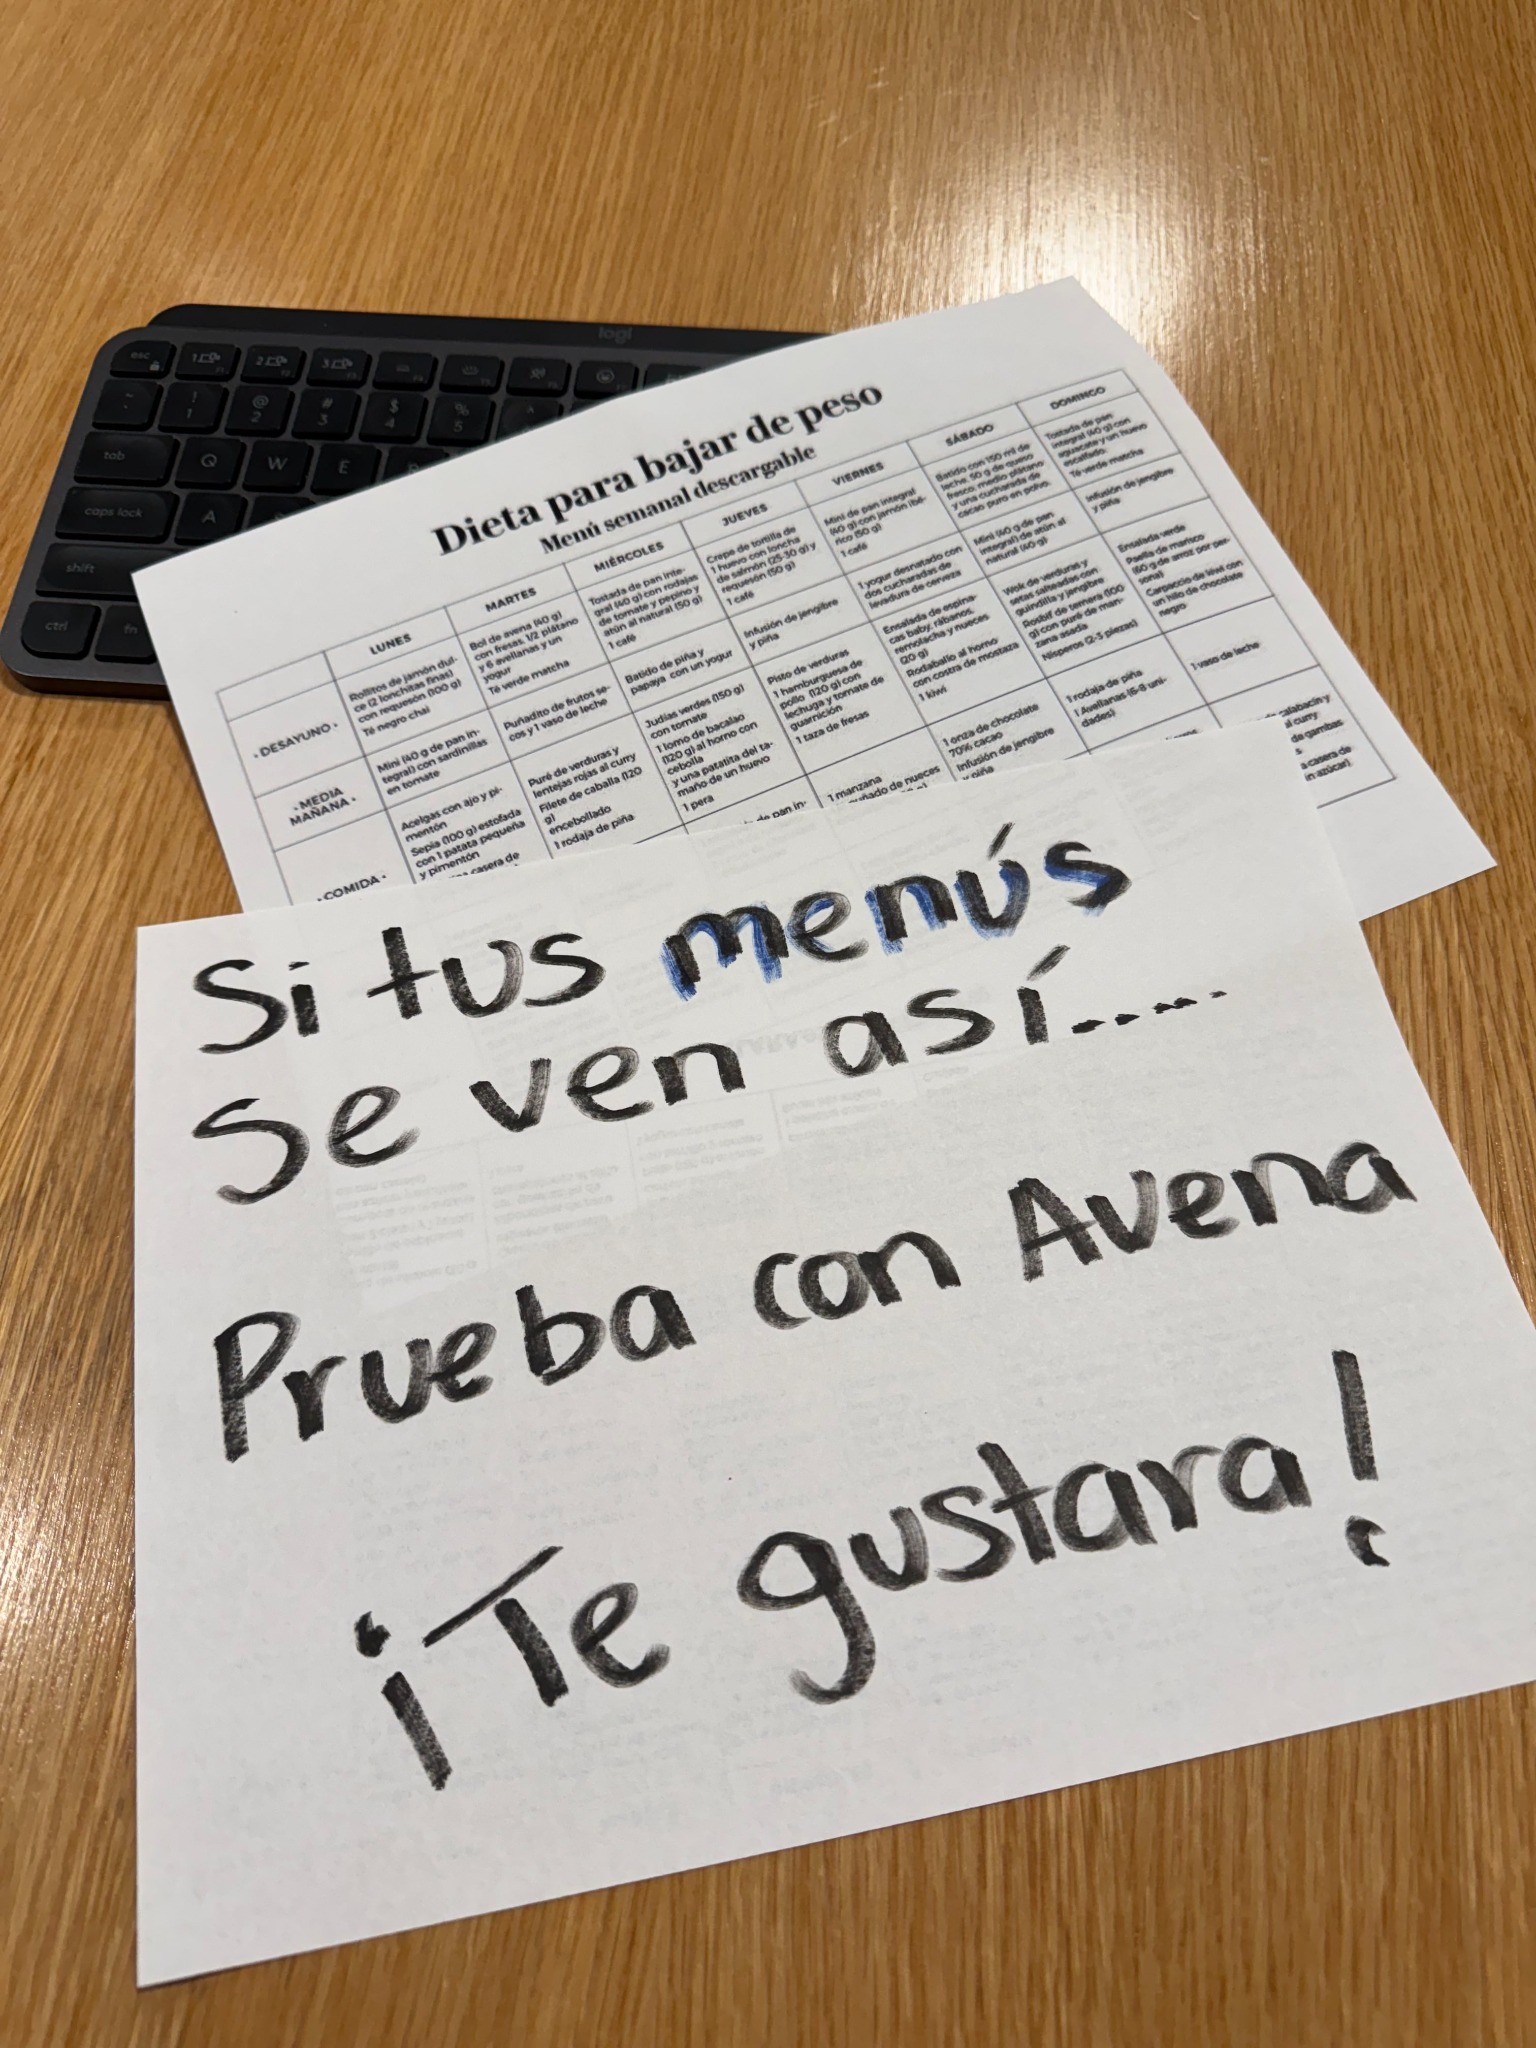 logi
esc 1 2 3
~ ! 1 @ 2 # 3 $ 4 % 5 ^
tab Q W E
caps lock A
shift
ctrl fn
Dieta para bajar de peso
Menú semanal descargable
LUNES MARTES MIÉRCOLES JUEVES VIERNES SÁBADO DOMINGO
• DESAYUNO •
Rollitos de jamón dul-
ce (2 lonchitas finas)
con requesón (100 g)
Té negro chai
Bol de avena (40 g)
con fresas, 1/2 plátano
y 6 avellanas y un
yogur
Té verde matcha
Tostada de pan inte-
gral (40 g) con rodajas
de tomate y pepino y
atún al natural (50 g)
1 café
Crepe de tortilla de
1 huevo con loncha
de salmón (25-30 g) y
requesón (50 g)
1 café
Mini de pan integral
(40 g) con jamón ibé-
rico (50 g)
1 café
Batido con 150 ml de
leche, 50 g de queso
fresco, medio plátano
y una cucharada de
cacao puro en polvo.
Tostada de pan
integral (40 g) con
aguacate y un huevo
escalfado.
Té verde matcha
• MEDIA
MAÑANA •
Mini (40 g de pan in-
tegral) con sardinillas
en tomate
Puñadito de frutos se-
cos y 1 vaso de leche
Batido de piña y
papaya con un yogur
Infusión de jengibre
y piña
1 yogur desnatado con
dos cucharadas de
levadura de cerveza
Mini (40 g de pan
integral) de atún al
natural (40 g)
Infusión de jengibre
y piña
• COMIDA •
Acelgas con ajo y pi-
mentón
Sepia (100 g) estofada
con 1 patata pequeña
y pimentón
casera de
Puré de verduras y
lentejas rojas al curry
Filete de caballa (120
g)
encebollado
1 rodaja de piña
Judías verdes (150 g)
con tomate
1 lomo de bacalao
(120 g) al horno con
cebolla
y una patatita del ta-
maño de un huevo
1 pera
Pisto de verduras
1 hamburguesa de
pollo (120 g) con
lechuga y tomate de
guarnición
1 taza de fresas
Ensalada de espina-
cas baby, rábanos,
remolacha y nueces
(20 g)
Rodaballo al horno
con costra de mostaza
1 kiwi
Wok de verduras y
setas salteadas con
guindilla y jengibre
Rosbif de ternera (100
g) con puré de man-
zana asada
Nísperos (2-3 piezas)
Ensalada verde
Paella de marisco
(60 g de arroz por per-
sona)
Carpaccio de kiwi con
un hilo de chocolate
negro
de pan in-
1 manzana
nueces
1 onza de chocolate
70% cacao
Infusión de jengibre
y piña
1 rodaja de piña
1 Avellanas (6-8 uni-
dades)
1 vaso de leche
calabacín y
curry
de gambas
casera de
azúcar)
Si tus menús
se ven así.....
Prueba con Avena
¡Te gustara!